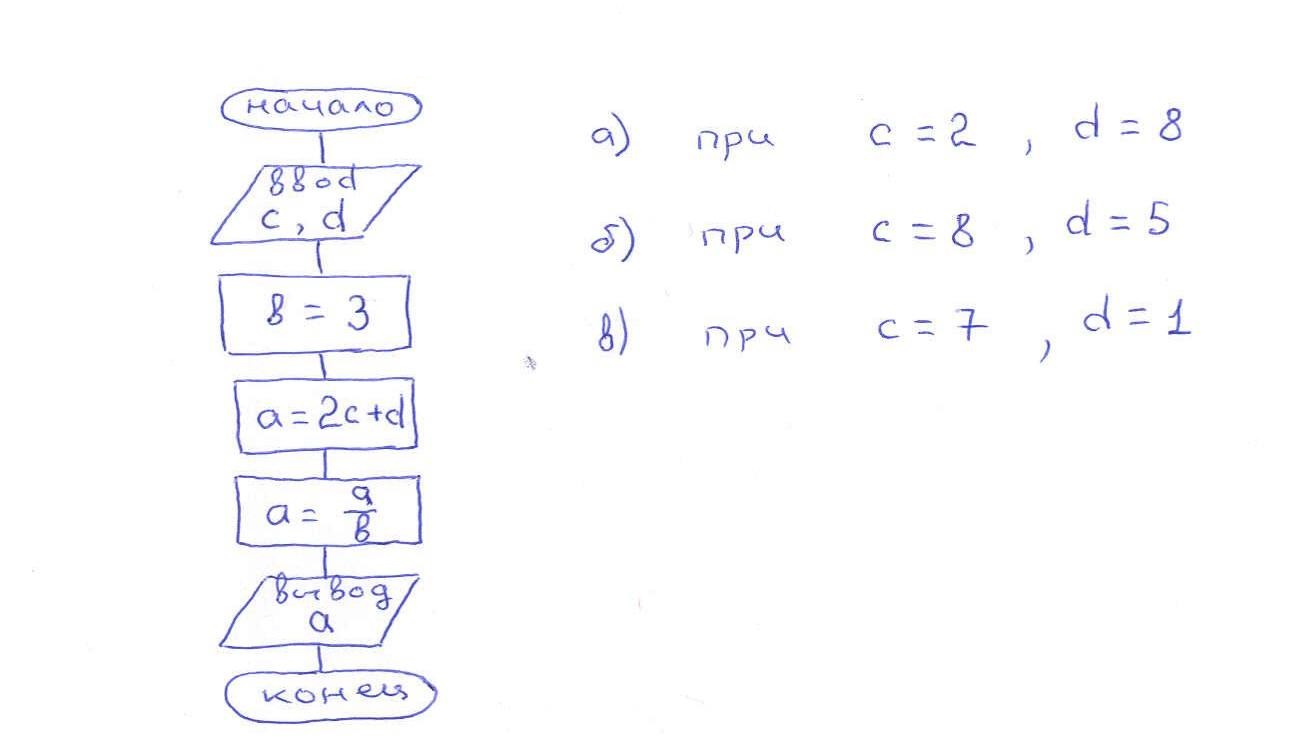 начало
ввод
c, d
в = 3
a = 2c+d
a = a/в
вывод
a
конец
а) при c = 2 , d = 8
б) при c = 8 , d = 5
в) при c = 7 , d = 1